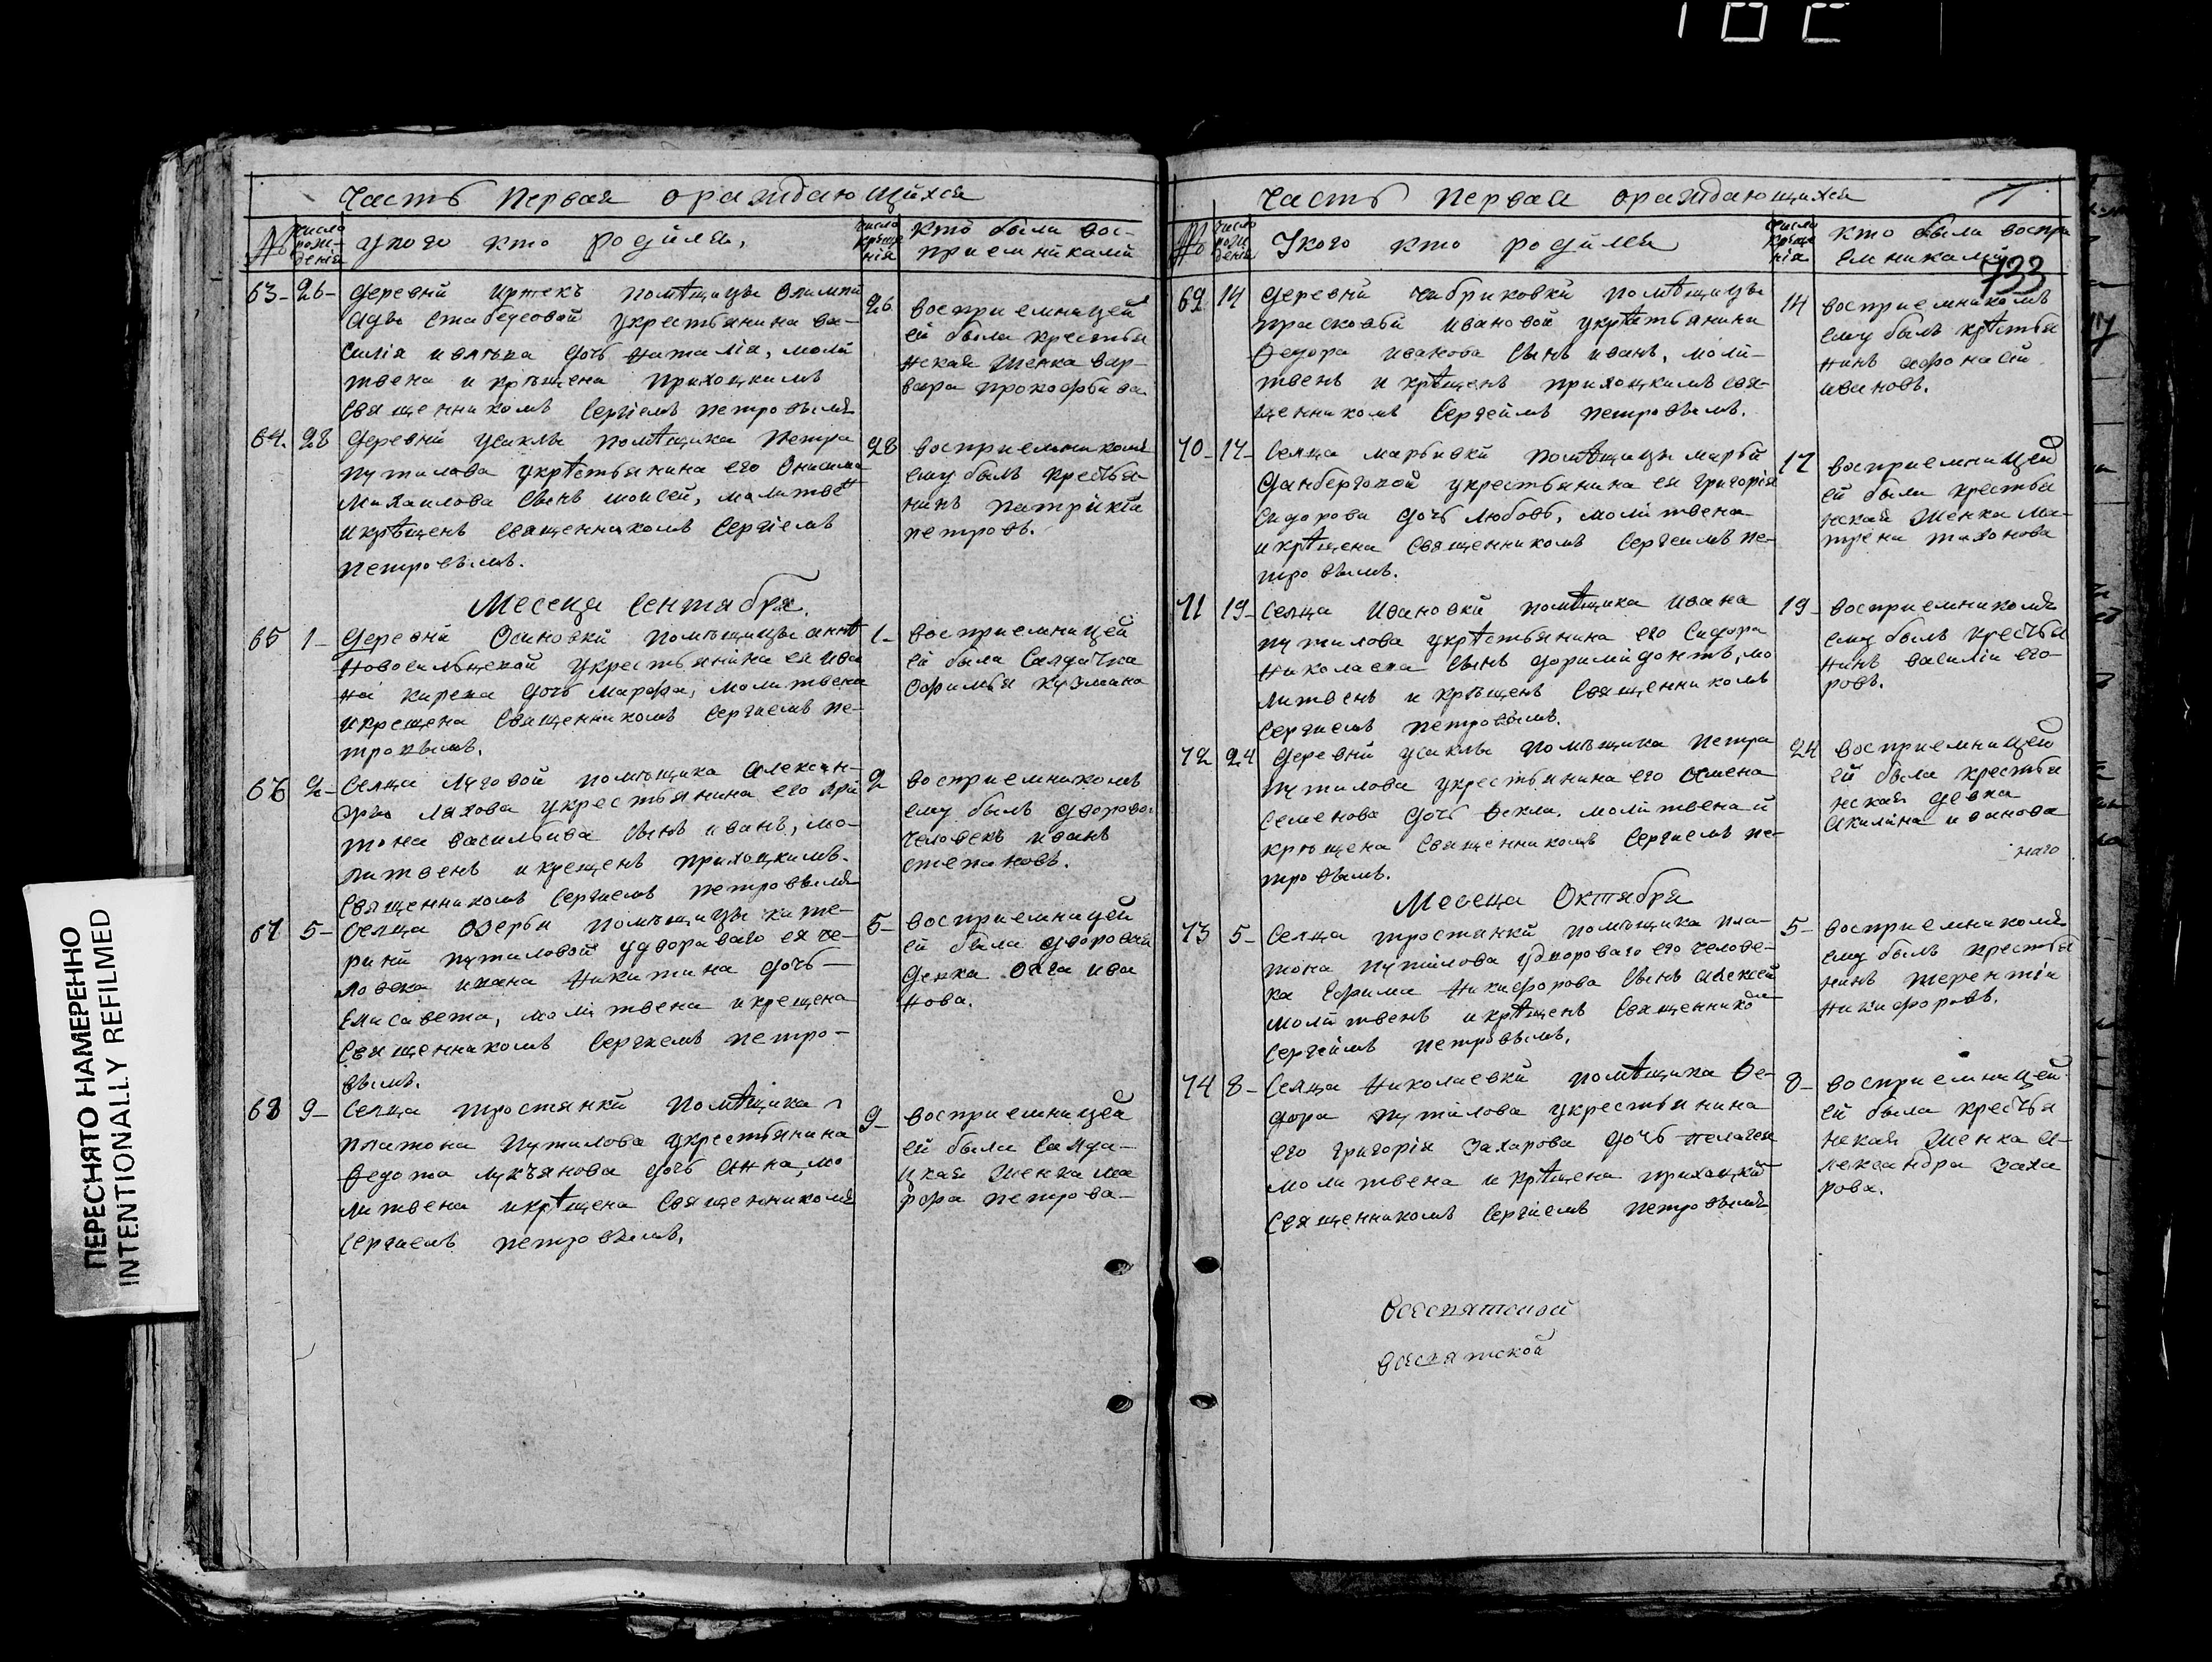 Часть Первая ораждающихся
№
число рожденія
у кого кто родился,
число крѣщенія
кто были вос-
приемниками
63- 26-
деревни Иртекъ помѣщицы Олимпи
ады Стабеусовой укрестьянина Ва-
силія дочь Наталія, моли
твена и крѣщена приходкимъ
священникомъ Сергіемъ Петровымъ
26
восприемницей
ей была крестья
нская женка Вар-
вара Прокофьива
64. 28
деревни Усаклы помѣщика Петра
Путилова укрѣстьянина его Онисима
Михаилова сынъ Моисей, молитвен
и крѣщенъ священникомъ Сергіемъ
Петровымъ.
28
восприемникомъ
ему былъ крестья
нинъ Патрикіи
Петровъ.
Месеца Сентября.
65 1-
деревни Осиновки помѣщицы Аннѣ
Новосильцской укрестьянина ея Ива
на Карева дочь Марфа, молитвена
икрещена священникомъ Сергиемъ Пе-
тровымъ.
1-
восприемницей
ей была Салдатка
Офимья Кузмина
66 2-
Селца Луговой помѣщика Алексан-
дра Ляхова укрестьянина его Хари
тона Васильива сынъ Иванъ, мо-
литвенъ икрещенъ приходкимъ
священникомъ Сергиемъ Петровымъ
2
восприемникомъ
ему былъ дворовой
человекъ Иванъ
Степановъ.
67 5-
Селца Озерби помѣщицы Кате-
рини Путиловой удвороваго ея че-
ловека Ивана Никитина дочь
Елисавета, молитвена икрещена
священникомъ Сергиемъ Петро-
вымъ.
5-
восприемницей
ей была дворовая
девка Олга Ива
нова.
68 9-
Селца Тростянки помѣщика
Платона Путилова укрестьянина
Ѳедота Лукъянова дочь Анна, мо
литвена икрѣщена священникомъ
Сергиемъ Петровымъ.
9-
восприемницей
ей была Салда-
цкая женка Ма
рфа Петрова
Часть Первая ораждающихся
№
число рожденія
Укого кто родился
число крѣщенія
кто были воспри
емниками
733
69 14
деревни Чибриковки помѣщицы
Прасковьи Ивановой укрѣстьянина
Ѳедора Иванова сынъ Иванъ, моли-
твенъ и крѣщенъ приходкимъ свя-
щенникомъ Сергеймъ Петровымъ.
14
восприемникомъ
ему былъ крѣстья
нинъ Афонасій
Ивановъ.
70- 17-
Селца Марьивки помѣщицы Марьи
Данберговой укрестьянина ея Григорія
Сидорова дочь Любовь, молитвена
икрѣщена священникомъ Сергеимъ Пе-
тровымъ.
17
восприемницей
ей была крестья
нская женка Ма-
трена Тихонова
71 19-
Селца Ивановки помѣщика Ивана
Путилова укрѣстьянина его Сидора
Николаева сынъ Доримидонтъ, мо
литвенъ и крѣщенъ священникомъ
Сергиемъ Петровымъ.
19-
восприемникомъ
ему былъ крестья
нинъ Василіи Его-
ровъ.
72 24
деревни Усаклы помѣщика Петра
Путилова укрестьянина его Семена
Семенова дочь Ѳекла. молитвена и
крѣщена священникомъ Сергиемъ Пе-
тровымъ.
24
восприемницей
ей была крестья
нская девка
Акилина Иванова
наго
Месеца Октября
73 5-
Селца Тростянки помѣщика Пла-
тона Путилова удвороваго его челове-
ка Ефима Никифорова сынъ Алексей
молитвенъ икрѣщенъ священнико
Сергеймъ Петровымъ.
5-
восприемникомъ
ему былъ крестья
нинъ Терентіи
Никифоровъ.
74 8-
Селца Николаевки помѣщика Ѳе-
дора Путилова укрестьянина
его Григорія Захарова дочь Пелагея
молитвена и крѣщена приходкимъ
священникомъ Сергиемъ Петровымъ
8-
восприемницей
ей была крестья
нская женка А-
лександра Заха
рова.
ПЕРЕСНЯТО НАМЕРЕННО
INTENTIONALLY REFILMED